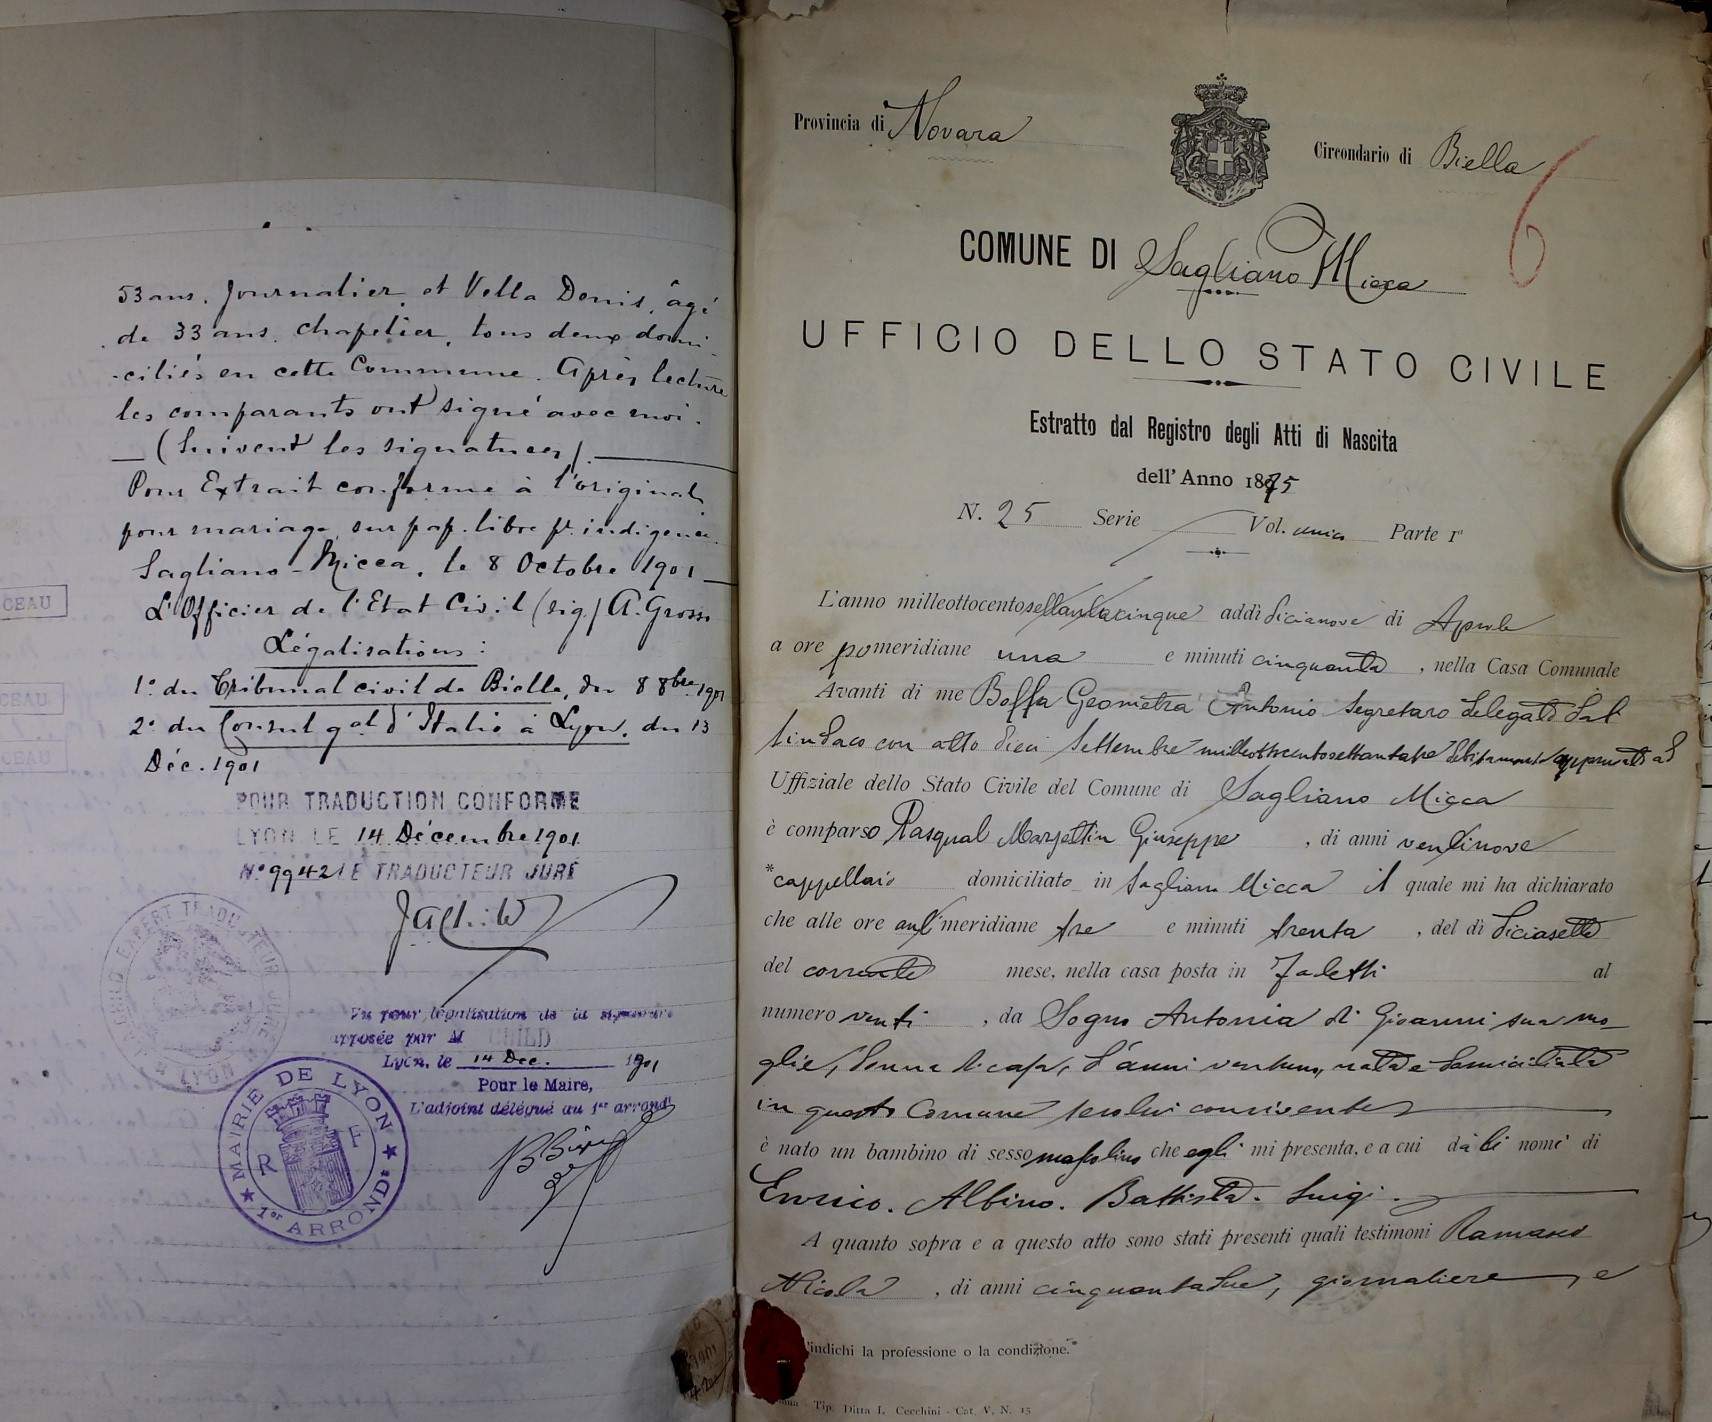 53 ans, Journalier, et Vella Denis, âgé
de 33 ans, chapelier, tous deux domi-
-ciliés en cette Commune. Après lecture
les comparants ont signé avec moi.
— (Suivent les signatures). —
Pour Extrait conforme à l'original,
pour mariage, sur pap. libre pr. indigence.
Sagliano-Micca, le 8 Octobre 1901 —
L'Officier de l'Etat Civil (sig.) A. Grosso
Légalisations :
1° du Tribunal civil de Bielle, du 8 8bre 1901
2° du Consul gal d'Italie à Lyon, du 13
Déc. 1901
POUR TRADUCTION CONFORME
LYON LE 14 Décembre 1901
N° 9942 LE TRADUCTEUR JURÉ
CHILD EXPERT TRADUCTEUR JURÉ
LYON
Vu pour légalisation de la signature
apposée par M CHILD
Lyon, le 14 Dec. 1901
Pour le Maire,
L'adjoint délégué au 1er arrondt
MAIRIE DE LYON
R F
1er ARRONDt
CEAU
CEAU
CEAU
Provincia di Novara
Circondario di Biella
6
COMUNE DI Sagliano Micca
UFFICIO DELLO STATO CIVILE
Estratto dal Registro degli Atti di Nascita
dell' Anno 1875
N. 25 Serie Vol. unico Parte Ia
L'anno milleottocentosettantacinque addì diecianove di Aprile
a ore pomeridiane una e minuti cinquanta , nella Casa Comunale
Avanti di me Boffa Geometra Antonio Segretaro delegato dal
Sindaco con atto dieci Settembre milleottocentosettantatre debitamente approvato ad
Uffiziale dello Stato Civile del Comune di Sagliano Micca
è comparso Pasqual Marzettin Giuseppe , di anni ventinove
*cappellaio domiciliato in Sagliano Micca il quale mi ha dichiarato
che alle ore antimeridiane tre e minuti trenta , del dì diciasette
del corrente mese, nella casa posta in Faletti al
numero venti , da Sogno Antonia di Giovanni sua mo-
glie, donna di casa, d'anni ventuno, nata e domiciliata
in questo Comune seco lui convivente
è nato un bambino di sesso mascolino che egli mi presenta, e a cui dà li nomi di
Enrico. Albino. Battista. Luigi.
A quanto sopra e a questo atto sono stati presenti quali testimoni Ramasco
Nicola , di anni cinquantadue, giornaliere e
'indichi la professione o la condizione.
Tip. Ditta L. Cecchini - Cat. V. N. 15